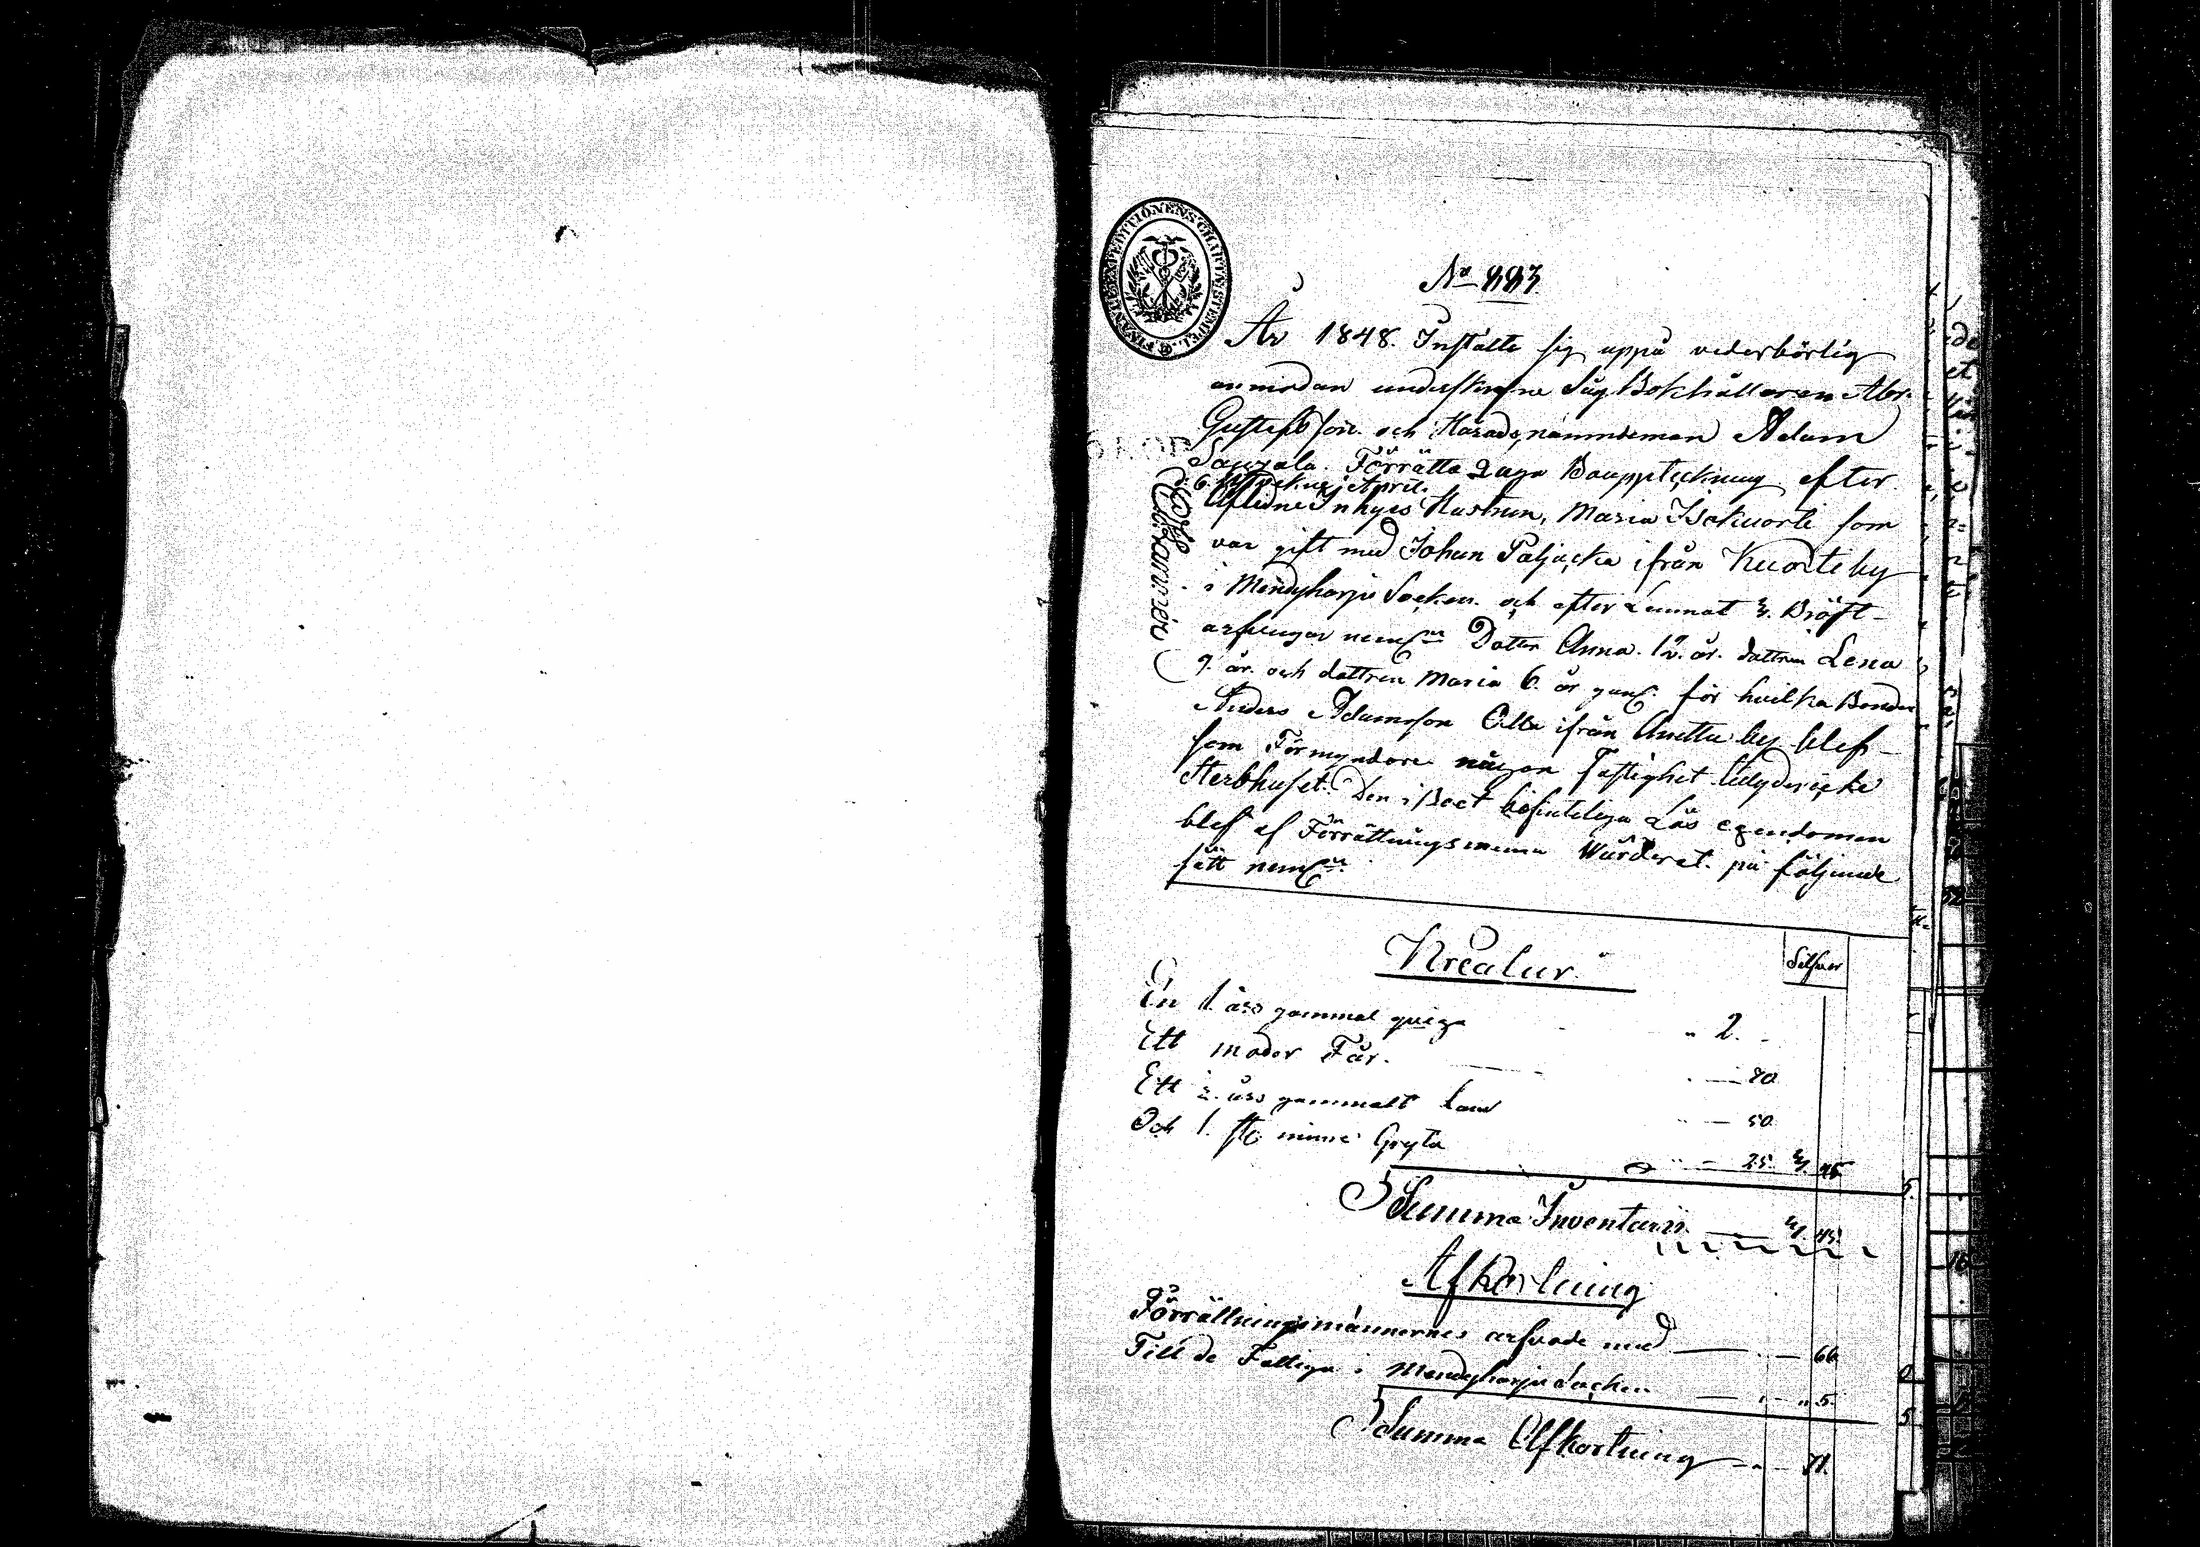 FINANCE EXPEDITIONENS CHARTÆ STEMPEL
No 883
År 1848. Instälte sig uppå vederbörlig
anmodan underskrefne Såg Bokhållaren Abr.
Gustafsson. och Häradsnämndeman Adam
Förrätta Laga Bouppteckning efter
April.
Aflidne Inhyses Hustrun, Maria som
var gift med Johan Paljacka ifrån Kuorti by
i Mendyharju Socken. och efter Lemnat 3. Bröst-
arfvingar neml. Dotter Anna. 12. år. dottren Lena
9. år. och dottren Maria 6. år gml. för hvilka Bonden
Anders Adamsson ifrån by blef
som Förmyndare någon Fastighet tillydericke
Sterbhuset. Den i Boet befinteliga Lös egendomen
blef af Förrättningsmenna Wärderat. på följande
sätt neml.
Kreatur.
Silfver
En 1. års gammal quiga 2.
Ett moder Får. 70
Ett 2. års gammalt Lam 50
Och 1. st. minne Gryta 25. 3. 45
Summa Inventarii. 3. 45.
Afkortning
Förrättningsmännernes arfvode med 66
Till de Fattiga i Mendyharju Socken 5.
Summa Afkortning 71.